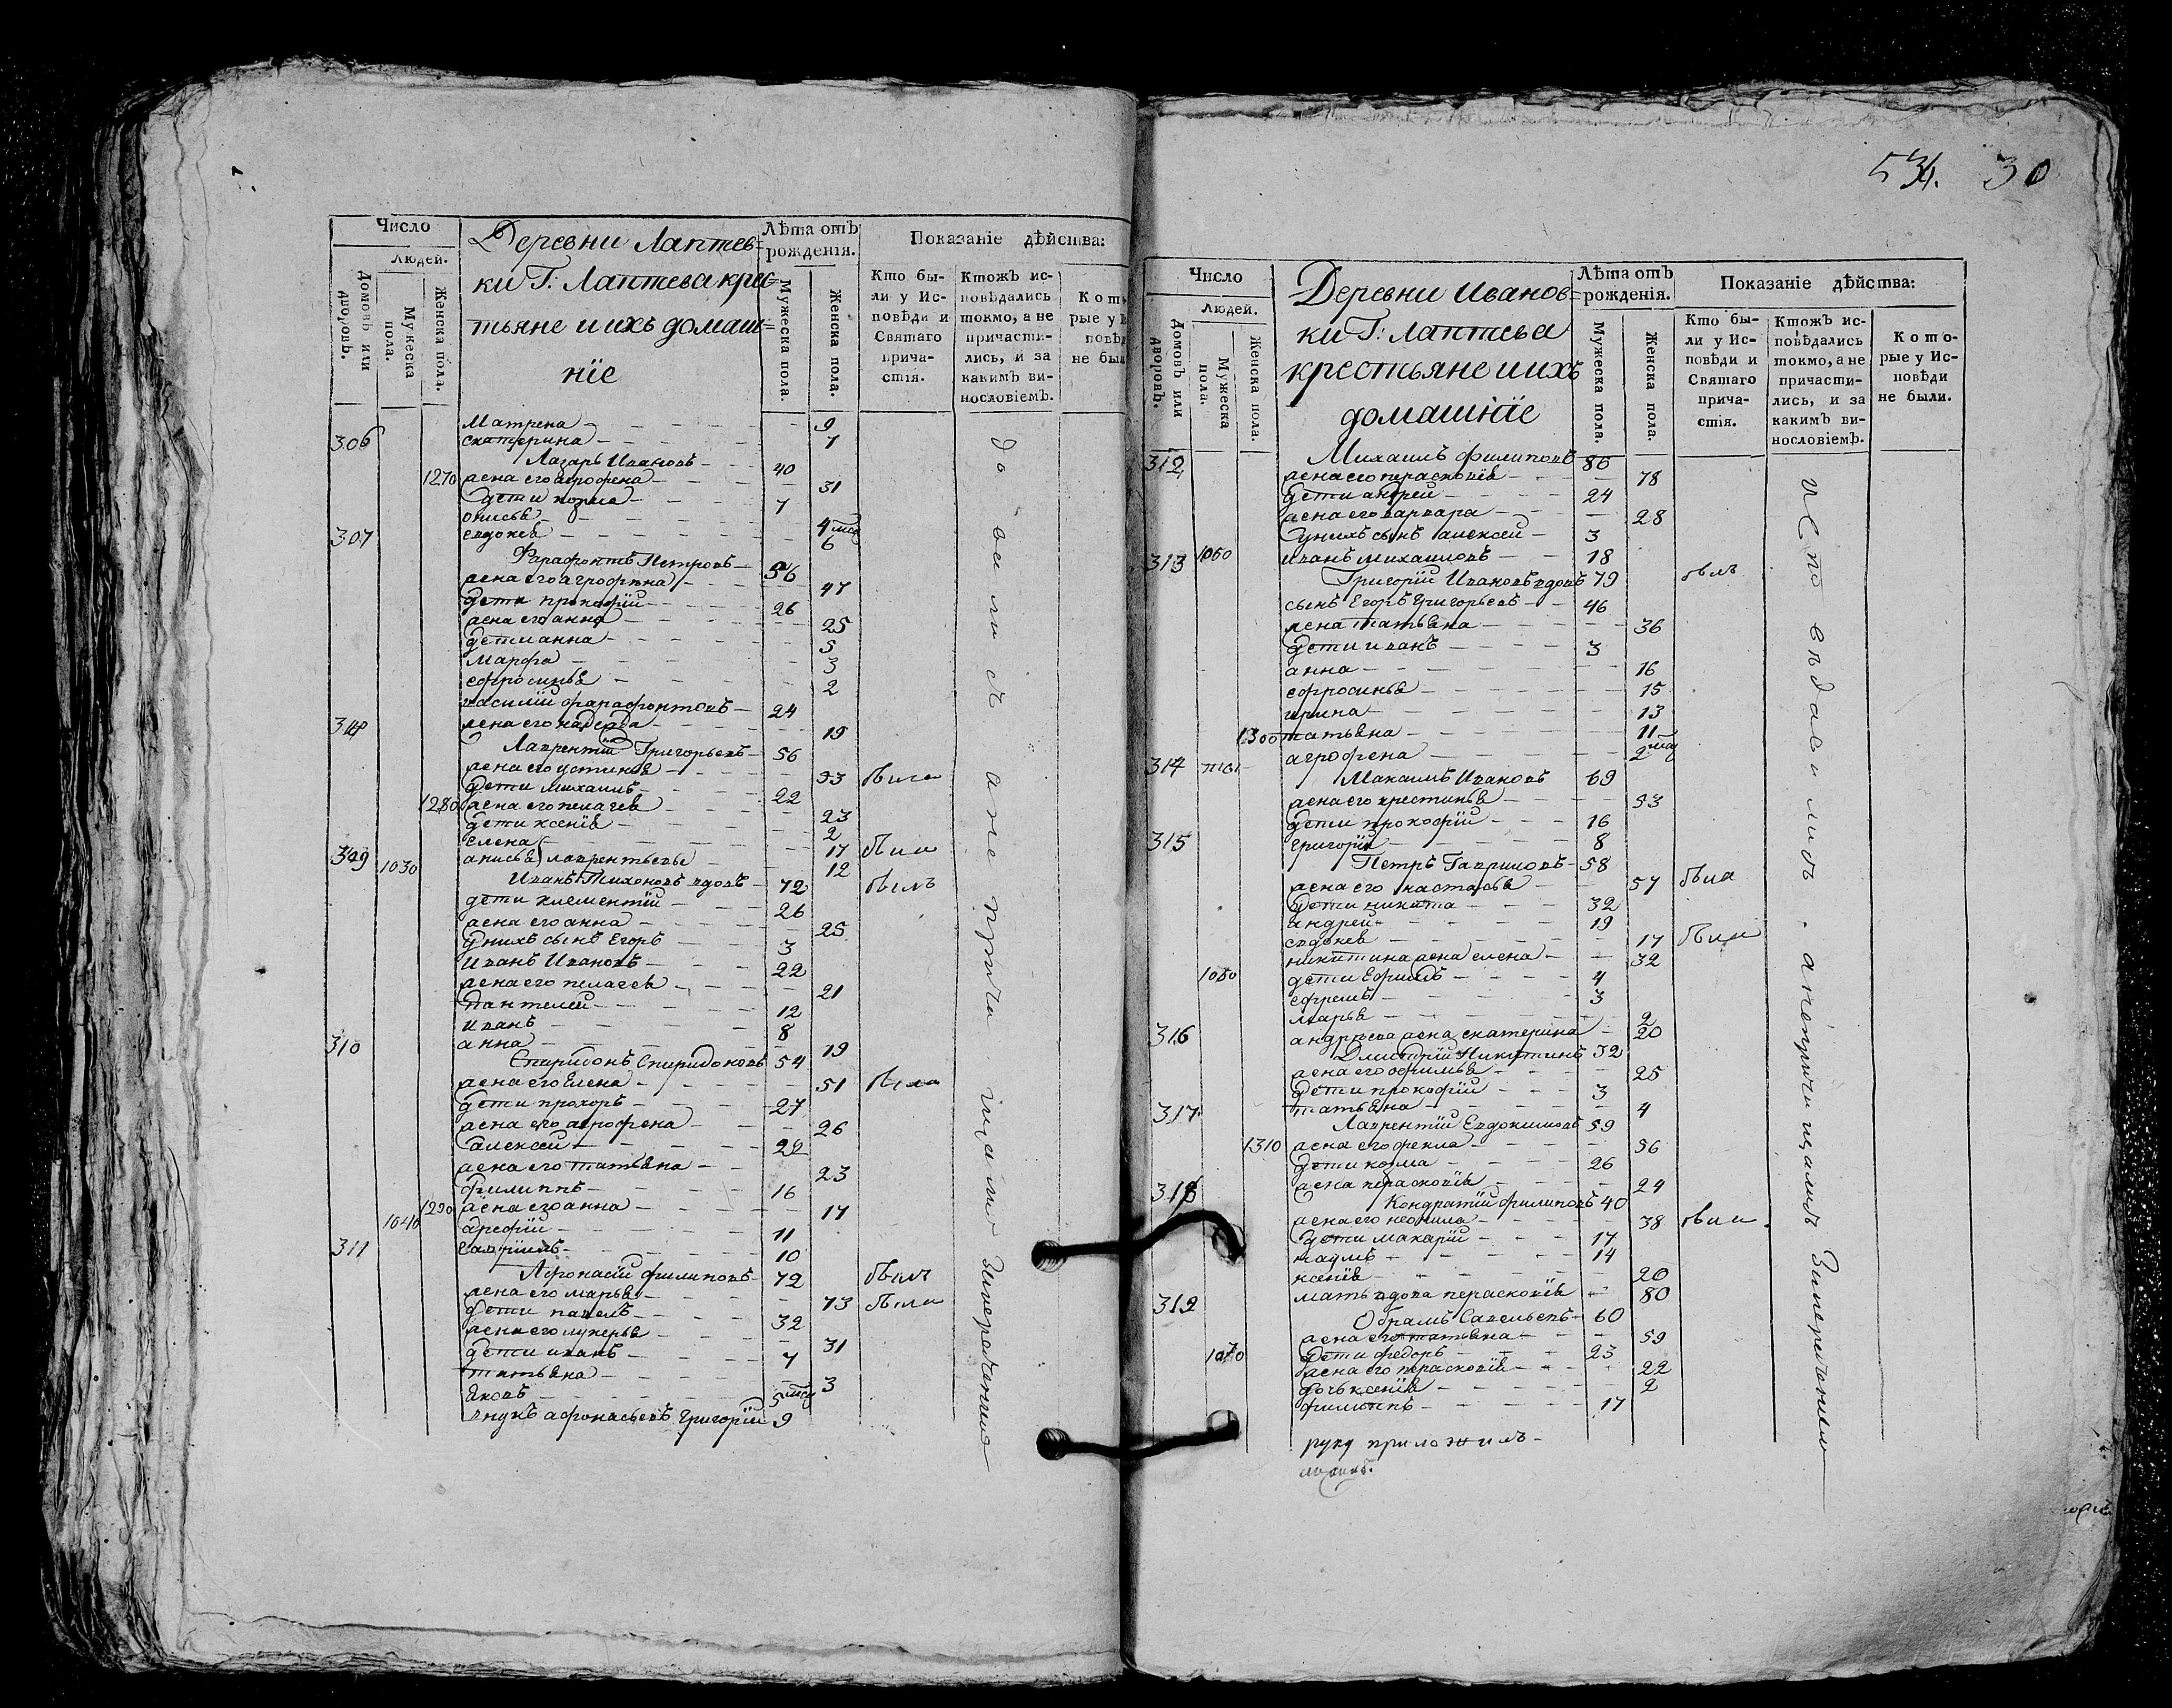 Число
Людей.
Домовъ или дворовъ.
Мужеска пола.
Женска пола.
Деревни Лаптев=
ки Г: Лаптева крес=
тьяне и ихъ домаш=
нїе
Лѣта отъ рожденія.
Мужеска пола.
Женска пола.
Показаніе дѣйства:
Кто бы-
ли у Ис-
повѣди и
Святаго
прича-
стія.
Ктожъ ис-
повѣдались
токмо, а не
причасти-
лись, и за
какимъ ви-
нословіемъ.
Матрена 9
306 екатерина 7
Лазарь Ивановъ 40
1270 жена его агрофена 31
дети козма 7
онисья 4 мсц
307 евдокея 6
Фарафонтъ Петровъ 56
жена его агрофена 47
дети прокофїй 26
жена его анна 25
дети анна 5
марфа 3
ефросинья 2
василїй фарафонтовъ 24
жена его надежда 19
Лаврентїй Григорьевъ 56
жена его устинья 53 была
дети михаилъ 22
1280 жена его пелагея 23
дети ксенїя 2
елена 17 была
309 1030 анисья лаврентьевы 12
Иванъ Тихоновъ вдовъ 72 былъ
дети клементїй 26
жена его анна 25
у нихъ сынъ Егоръ 3
Иванъ Ивановъ 22
жена его пелагея 21
Пантелей 12
иванъ 8
310 анна 19
Спиридонъ Спиридоновъ 54
жена его Елена 51 была
дети прохоръ 27
жена его агрофена 26
алексей 22
жена его татьяна 23
филиппъ 16
1290 жена его анна 17
1040 арефїй 11
311 гаврїилъ 10
Афонасїй филиповъ 72 былъ
жена его марья 73 была
дети павелъ 32
жена его лукерья 31
дети иванъ 7
татьяна 3
Яковъ 5 мсц
внукъ афонасьевъ григорїй 9
до
вались
а не причи
щались
Занерачением
534. 30
Число
Людей.
Домовъ или дворовъ.
Мужеска пола.
Женска пола.
Деревни Иванов=
ки Г: Лаптева
крестьяне и ихъ
домашнїе
Лѣта отъ рожденія.
Мужеска пола.
Женска пола.
Показаніе дѣйства:
Кто бы-
ли у Ис-
повѣди и
Святаго
прича-
стія.
Ктожъ ис-
повѣдались
токмо, а не
причасти-
лись, и за
какимъ ви-
нословіемъ.
Кото-
рые у Ис-
повѣди
не были.
312 Михаилъ филиповъ 86
жена его парасковїя 78
дети андрей 24
жена его варвара 28
у нихъ сынъ алексей 3
313 1050 иванъ михаиловъ 18
Григорїй Ивановъ вдовъ 79 былъ
сынъ Егоръ Григорьевъ 46
жена татьяна 36
дети иванъ 3
анна 16
ефросинья 15
ирина 13
1300 татьяна 11
агрофена 2 мсц
314 Максимъ Ивановъ 69
жена его крестинья 53
дети прокофїй 16
315 григорїй 8
Петръ Гавриловъ 58
жена его настасья 57 была
дети никита 32
андрей 19
евдокея 17 была
никитина жена елена 32
1060 дети Ефимъ 4
ефремъ 3
марья 2
316 андреева жена екатерина 20
Дмитрїй Никитинъ 32
жена его офимья 25
дети прокофїй 3
317 татьяна 4
Лаврентїй Евдокимовъ 59
1310 жена его фекла 56
дети козма 26
жена парасковїя 24
318 Кондратїй филиповъ 40
жена его неонила 38 была
дети макарїй 17
наумъ 14
ксенїя 20
мать вдова парасковїя 80
319 Обрамъ Савельевъ 60
жена его татьяна 59
1070 дети федоръ 23
жена его парасковїя 22
дочь ксенїя 2
филиппъ 17
исповѣдались . а непричищались Занерачением
руку приложилъ